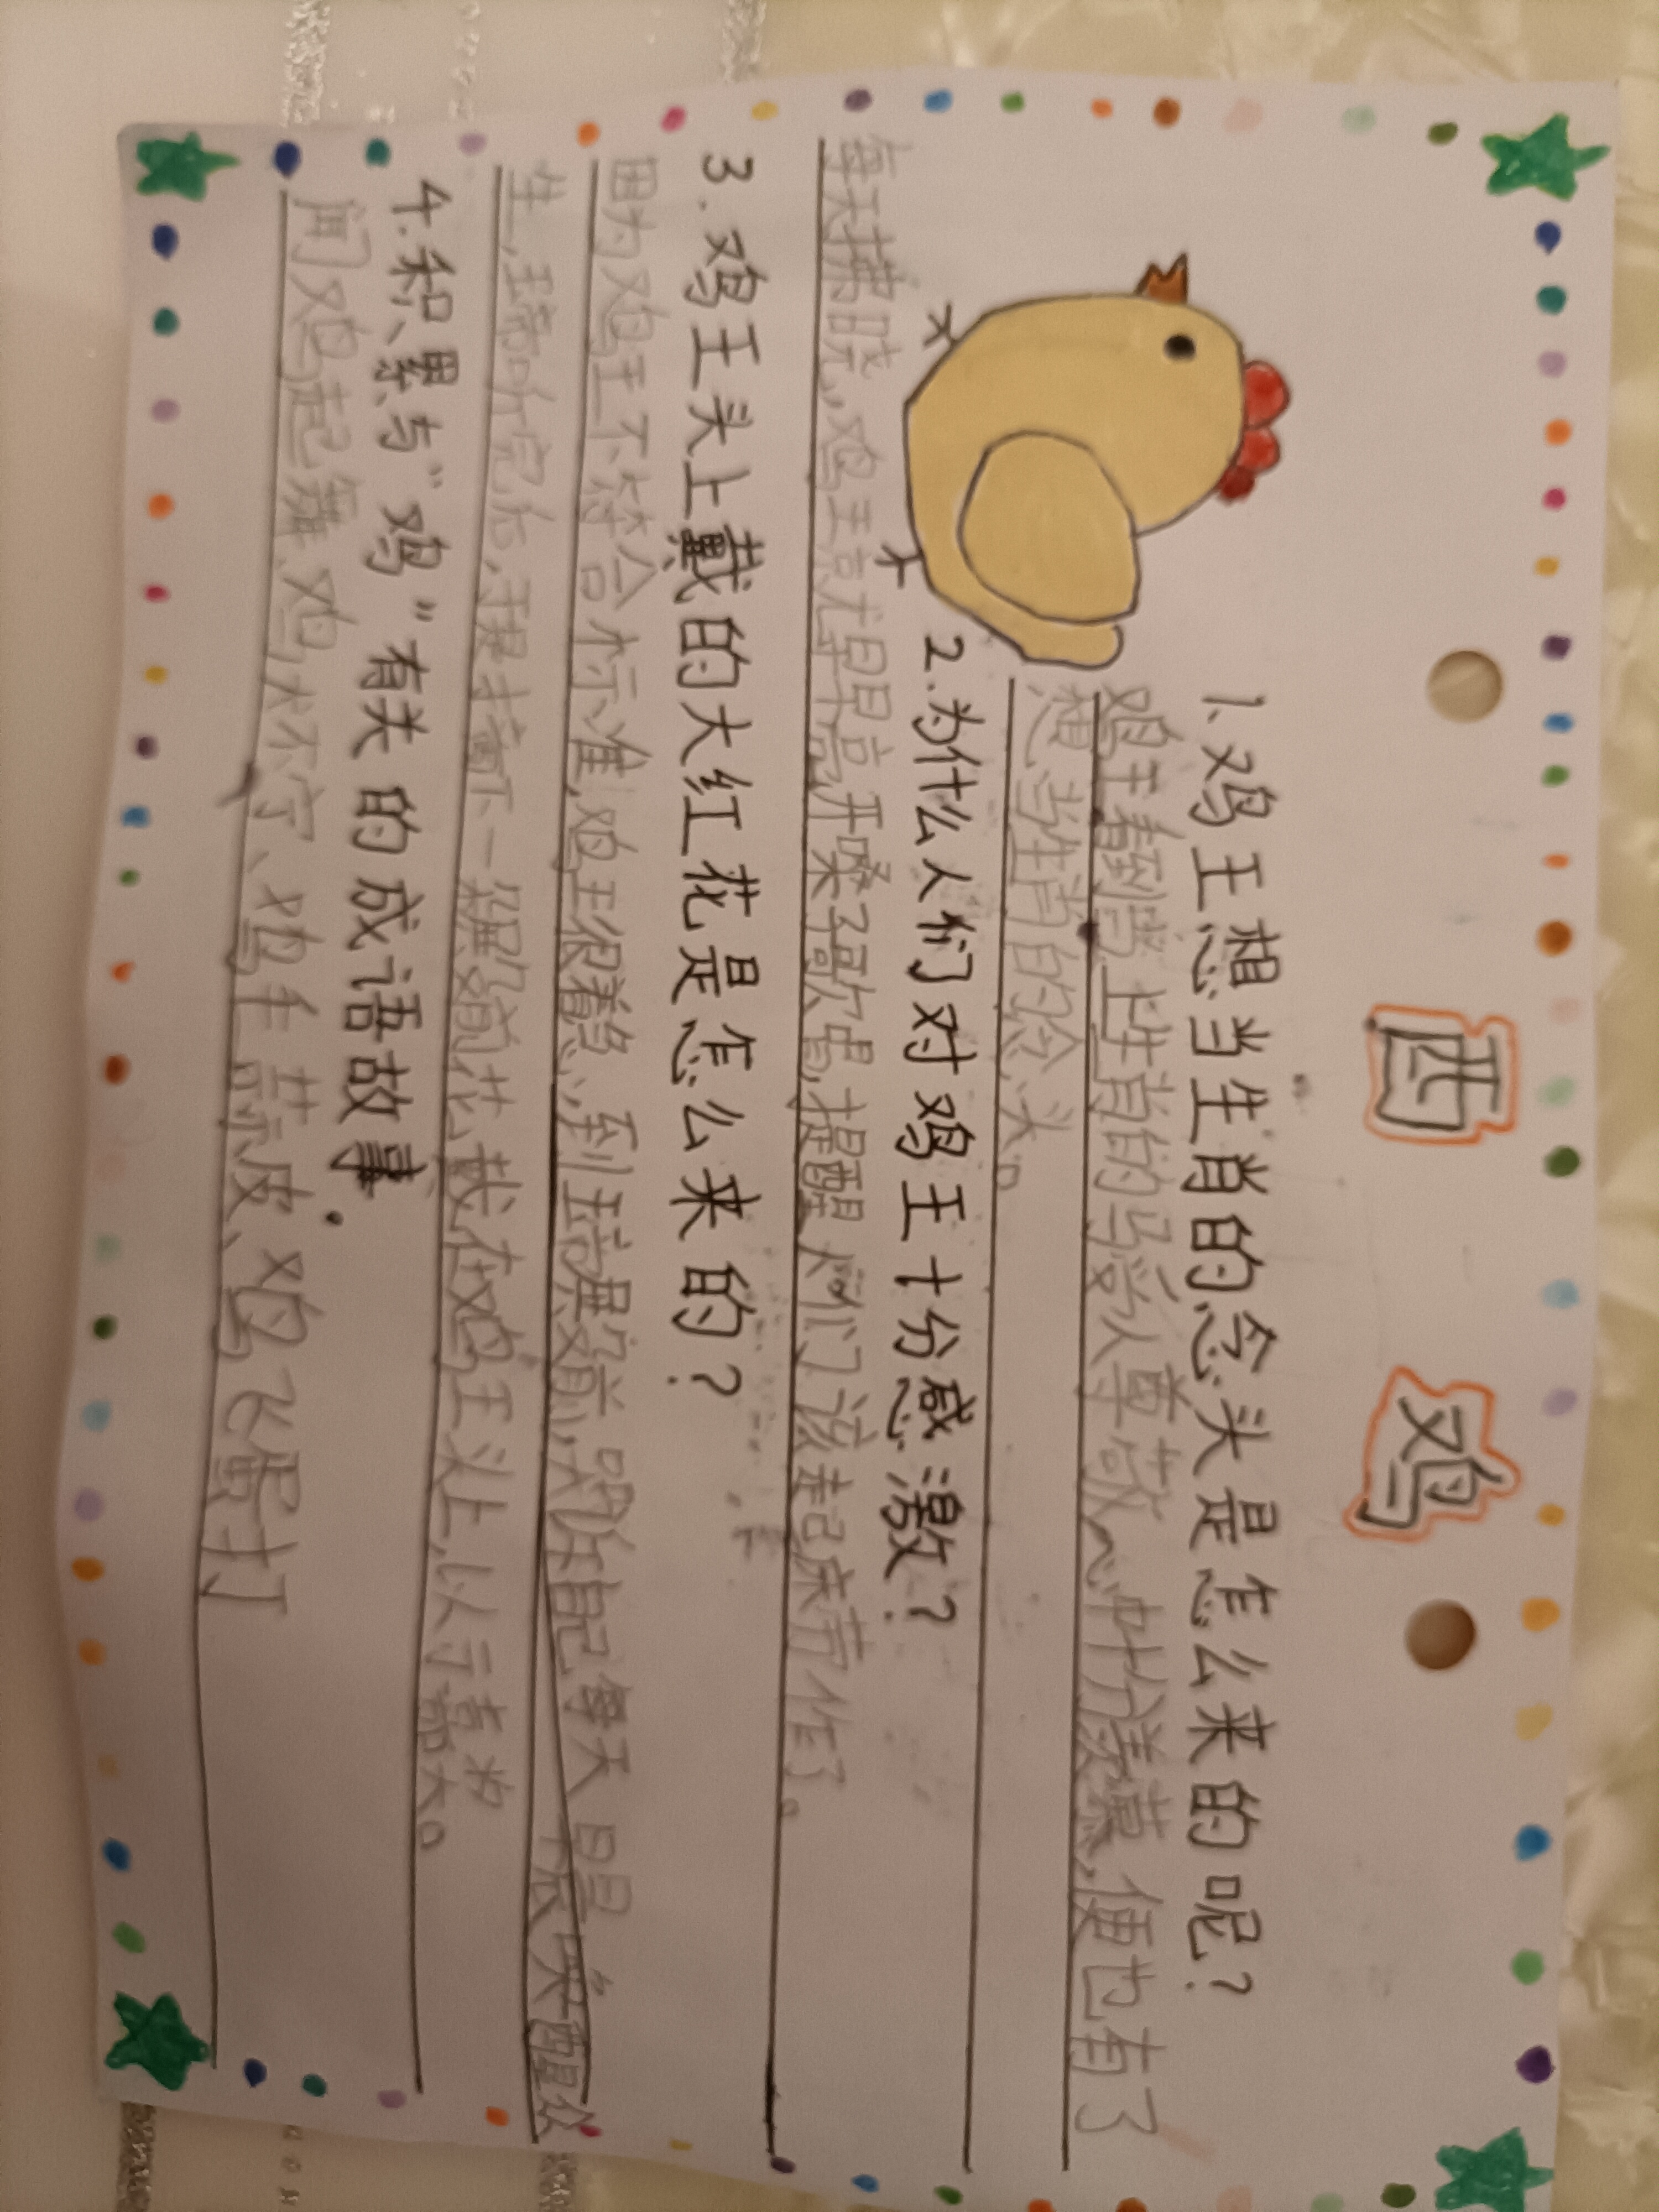 酉 鸡
1、鸡王想当生肖的念头是怎么来的呢?
鸡王看到当上生肖的马受人尊敬,心中十分羡慕,便也有了
想当生肖的念头。
2.为什么人们对鸡王十分感激?
每天拂晓,鸡王就早早亮开嗓子歌唱,提醒人们该起床劳作了。
3.鸡王头上戴的大红花是怎么来的?
因为鸡王不符合标准,鸡王很着急,到玉帝殿前,哭诉自己每天早早
哭醒众
生,玉帝听完后,于是摘下一朵殿前花,戴在鸡王头上,以示嘉奖。
4.积累与"鸡"有关的成语故事.
闻鸡起舞、鸡犬不宁、鸡毛蒜皮、鸡飞蛋打